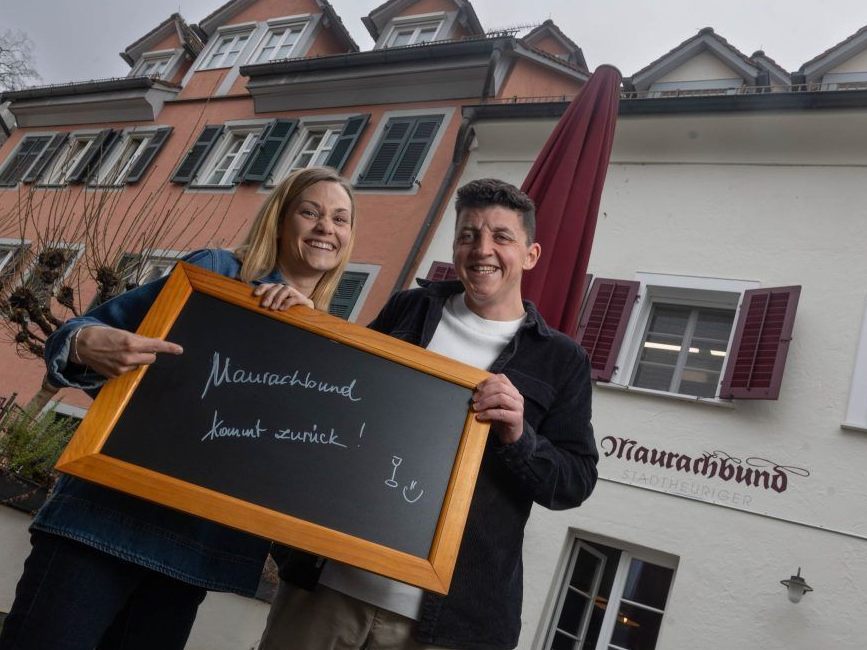 Maurachbund
kommt zurück!
Maurachbund
STADTHEURIGER